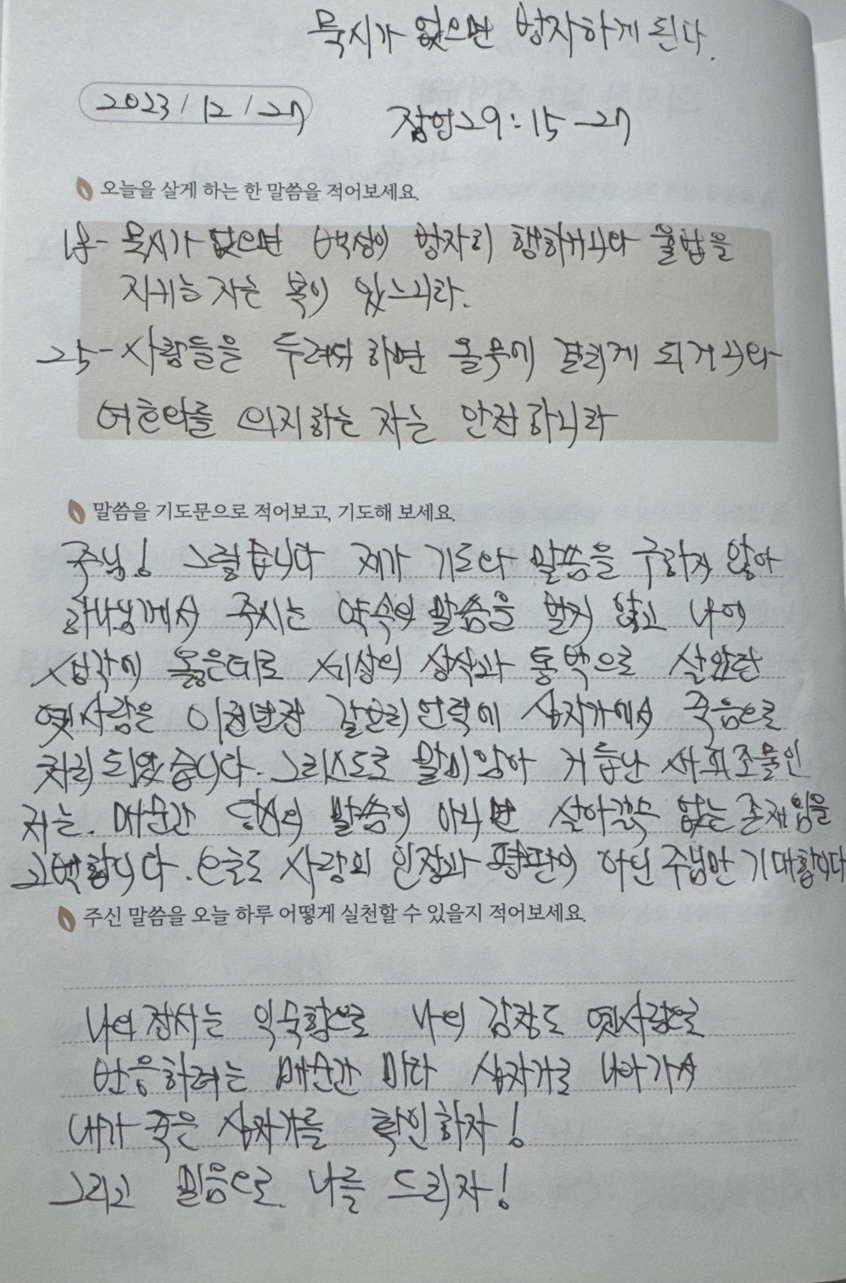 묵시가 없으면 방자하게 된다.
2023/12/27
잠언29:15-27
오늘을 살게 하는 한 말씀을 적어보세요.
18- 묵시가 없으면 백성이 방자히 행하거니와 율법을
지키는 자는 복이 있느니라.
25- 사람들을 두려워 하면 올무에 걸리게 되거니와
여호와를 의지하는 자는 안전하니라
말씀을 기도문으로 적어보고, 기도해 보세요.
주님! 그렇습니다 제가 기도와 말씀을 구하지 않아
하나님께서 주시는 약속의 말씀을 받지 않고 나에
생각에 옳은대로 세상의 상식과 통박으로 살았던
옛사람은 이천년전 갈보리 언덕에 십자가에서 죽음으로
처리 되었습니다. 그리스도로 말미암아 거듭난 새피조물인
저는. 매순간 당신의 말씀이 아니면 살아갈수 없는 존재임을
고백합니다. 오늘도 사람의 인정과 평판이 아닌 주님만 기대합니다
주신 말씀을 오늘 하루 어떻게 실천할 수 있을지 적어보세요.
나의 정서는 익숙함으로 나의 감정도 옛사람으로
반응하려는 매순간 마다 십자가로 나아가서
내가 죽은 십자가를 확인하자!
그리고 믿음으로 나를 드리자!